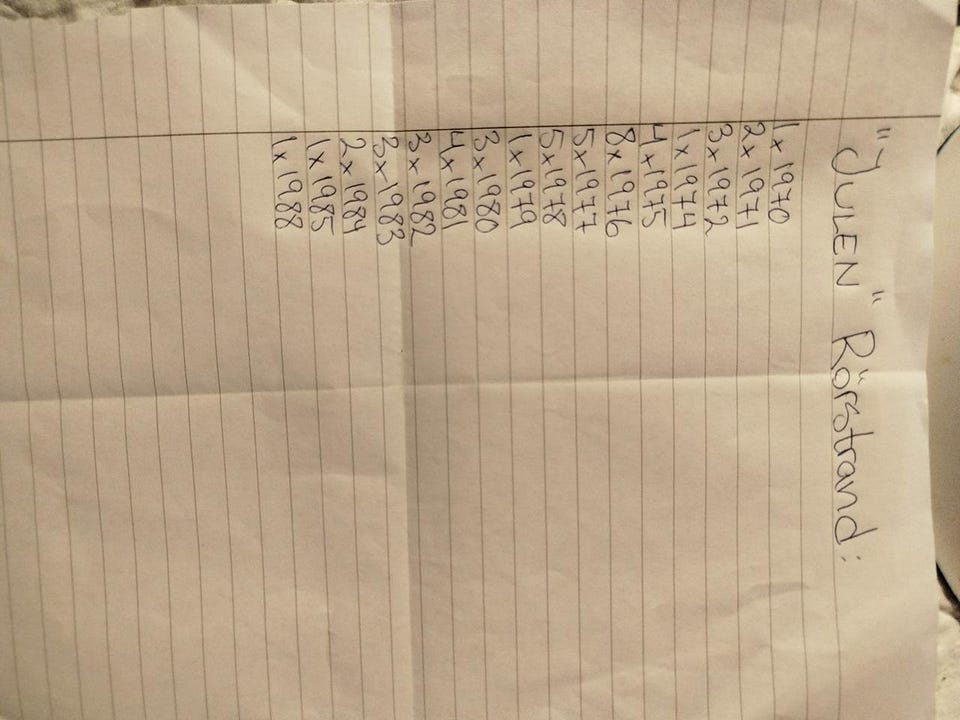 "JULEN" Rörstrand:
1x1970
2x1971
3x1972
1x1974
4x1975
8x1976
5x1977
5x1978
1x1979
3x1980
4x1981
3x1982
3x1983
2x1984
1x1985
1x1988